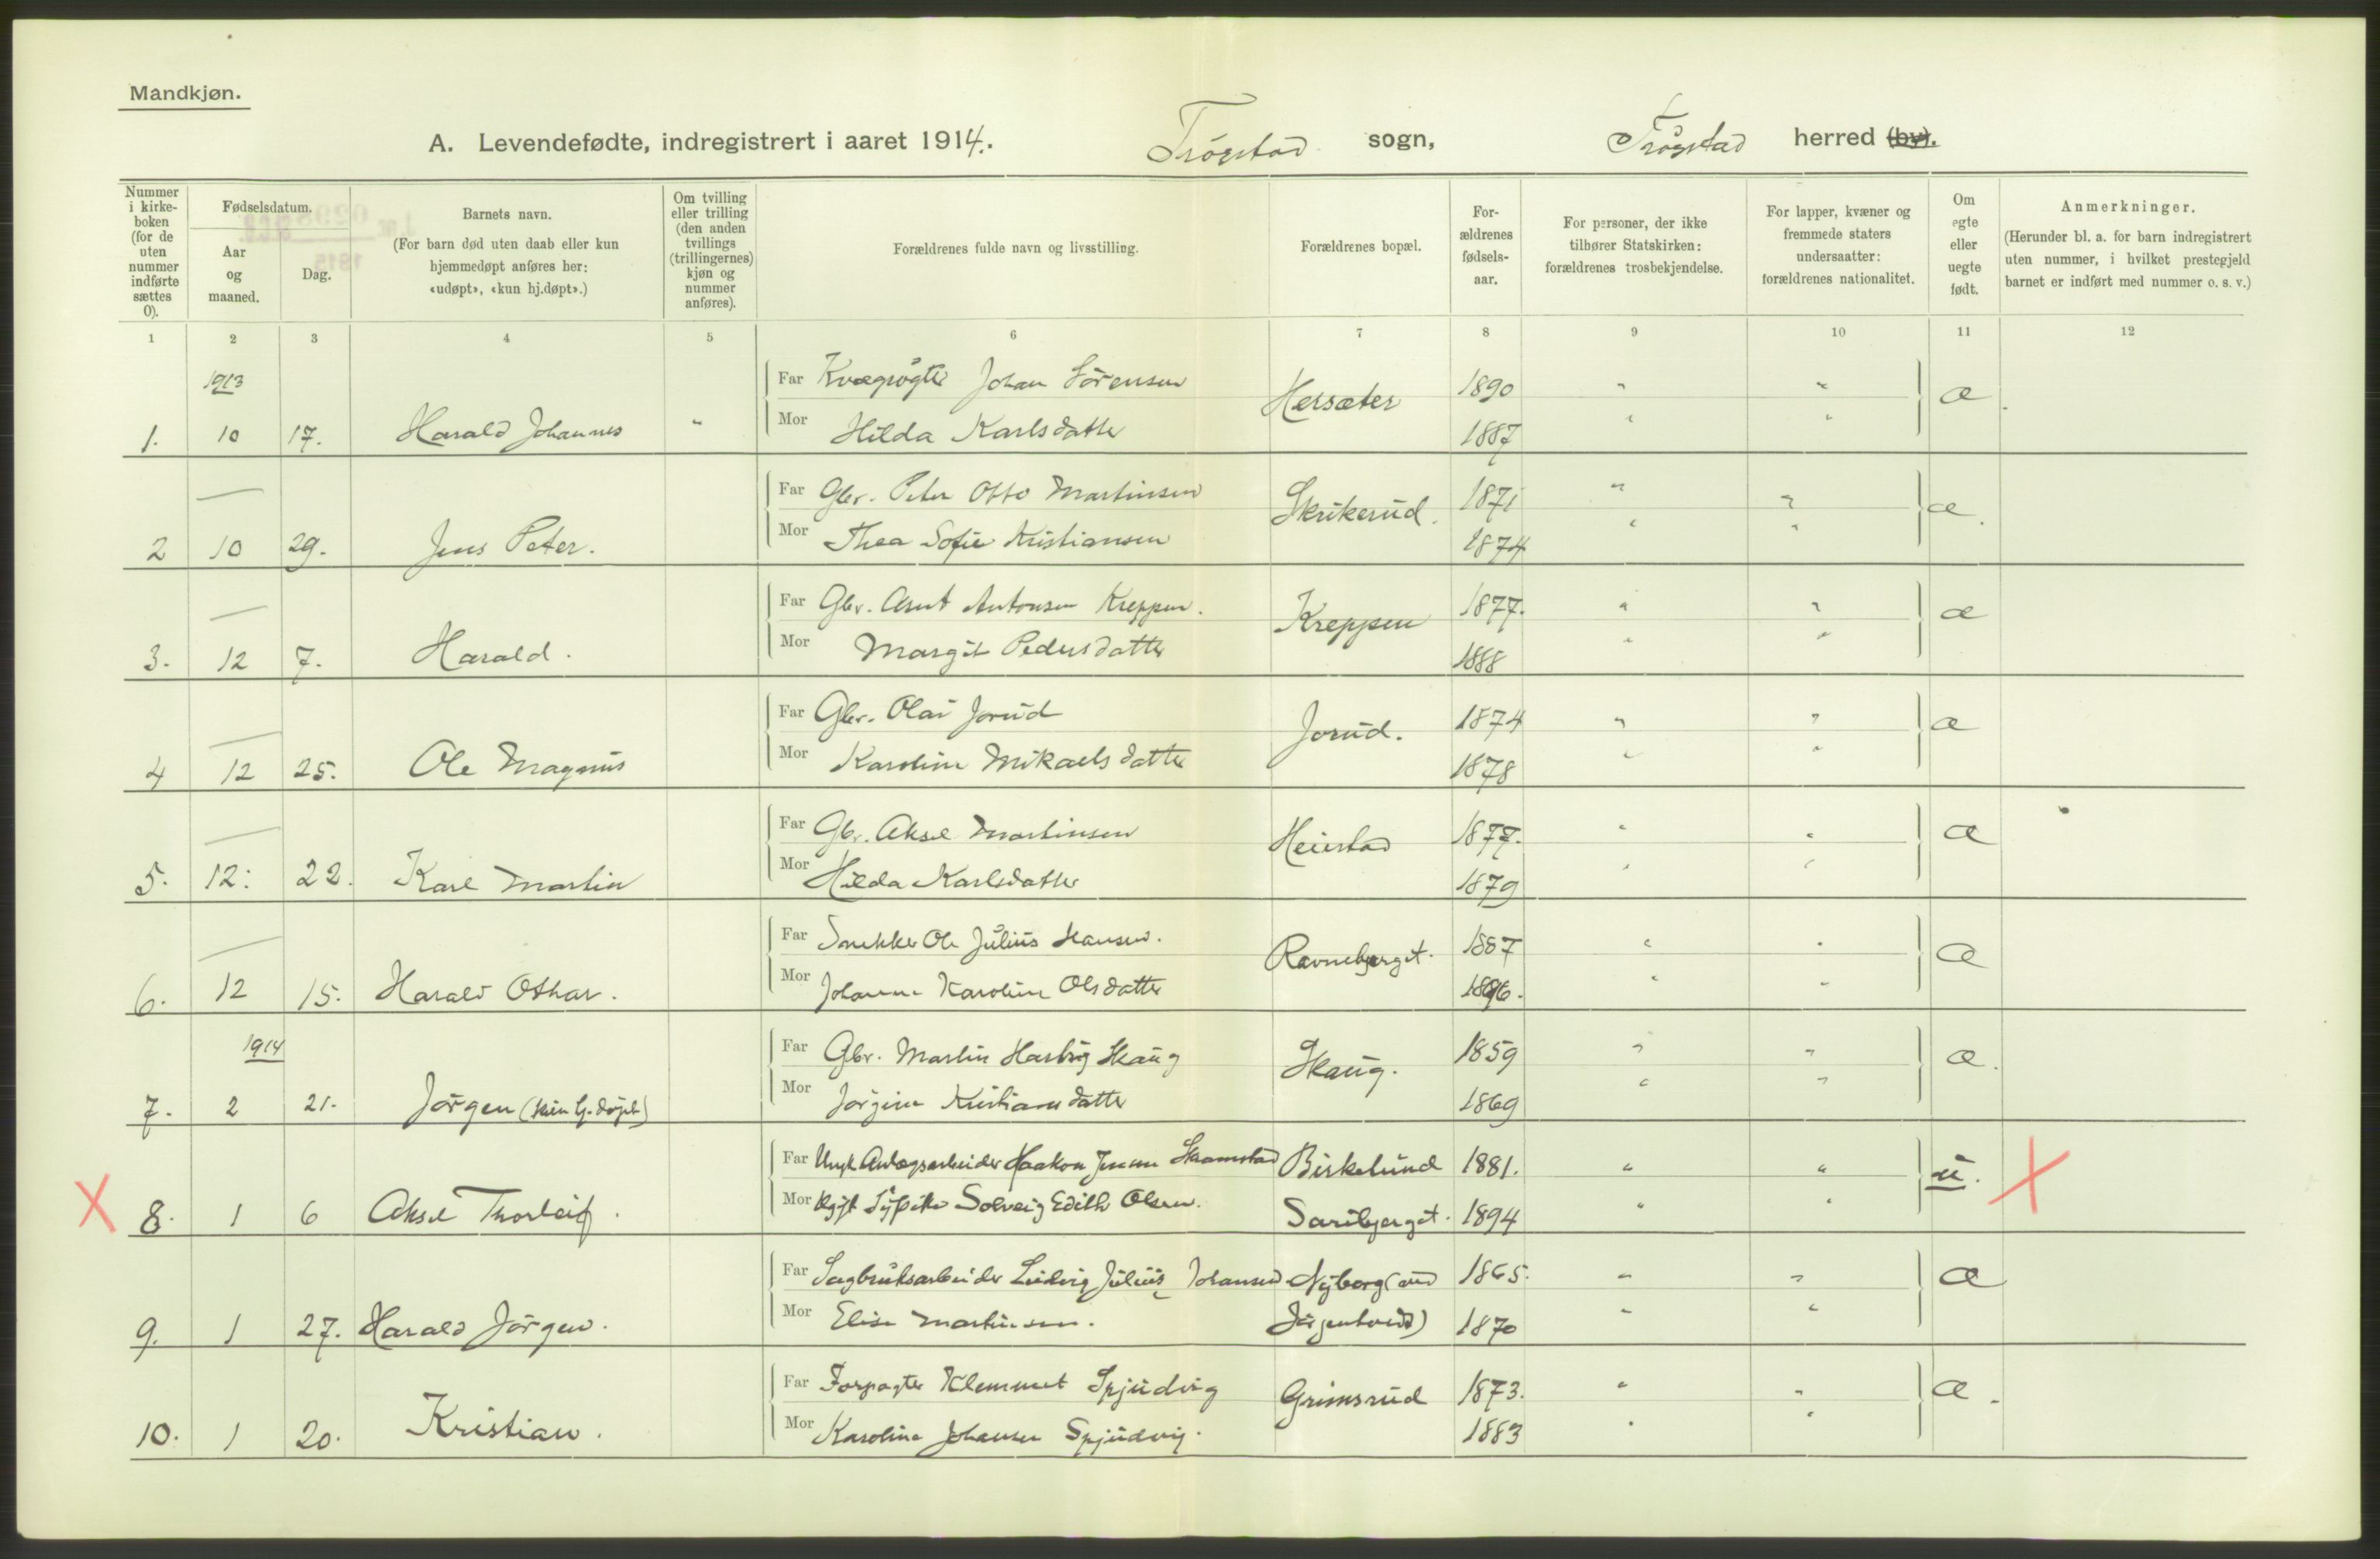 Mandkjøn.
A. Levendefødte, indregistrert i aaret 1914. Trøgstad sogn, Trøgstad herred (by).
Nummer i kirkeboken (for de uten nummer indførte sættes 0).
Fødselsdatum.
Aar og maaned.
Dag.
Barnets navn.
(For barn død uten daab eller kun hjemmedøpt anføres her: «udøpt», «kun hj.døpt».)
Om tvilling eller trilling (den anden tvillings (trillingernes) kjøn og nummer anføres).
Forældrenes fulde navn og livsstilling.
Forældrenes bopæl.
Forældrenes fødselsaar.
For personer, der ikke tilhører Statskirken: forældrenes trosbekjendelse.
For lapper, kvæner og fremmede staters undersaatter: forældrenes nationalitet.
Om egte eller uegte født.
Anmerkninger.
(Herunder bl. a. for barn indregistrert uten nummer, i hvilket prestegjeld barnet er indført med nummer o. s. v.)
1 2 3 4 5 6 7 8 9 10 11 12
1913
Far Kvægrøgter Johan Sørensen Hersæter 1890 " " æ
1. 10 17. Harald Johannes " Mor Hilda Karlsdatter 1887 " "
— Far Gbr. Peter Otto Martinsen Skrikerud. 1871 " " æ.
2 10 29. Jens Peter. Mor Thea Sofie Kristiansen 1874 " "
— Far Gbr. Arnt Antonsen Kreppen. Kreppen 1877. " " æ
3. 12 7. Harald. Mor Margit Pedersdatter 1888 " "
— Far Gbr. Olai Jorud Jorud. 1874 " " æ
4 12 25. Ole Magnus Mor Karoline Mikaelsdatter 1878 " "
— Far Gbr. Aksel Martinsen Heiestad 1877. " " æ
5. 12. 22. Karl Martin Mor Hilda Karlsdatter 1879 " "
— Far Snekker Ole Julius Hansen. Ravnebjerget. 1887 " " æ
6. 12 15. Harald Othar. Mor Johanne Karoline Olsdatter " "
1914
Far Gbr. Martin Hartvig Skaug Skaug. 1859 " " æ.
7. 2 21. Jörgen (kun hj. døpt) Mor Jørgine Kristiansdatter 1869 " "
Far Ugift Anlægsarbeider Haakon Jensen Skamstad Birkelund 1881. " " u.
8. 1 6 Aksel Thorleif. Mor Ugift Sypike Solveig Edith Olsen. 1894 " "
Far Sagbruksarbeider Ludvig Julius Johansen Nyborg 1865. " " æ
9. 1 27. Harald Jörgen. Mor Elise Martinsen. 1870 " "
Far Forpagter Klemmet Spjudvig Grimsrud 1873. " " æ.
10. 1 20. Kristian. Mor Karoline Johansen Spjudvig. 1883 " "